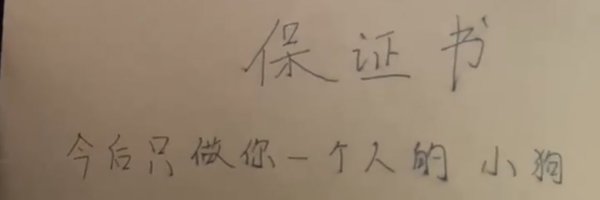 保证书
今后只做你一个人的 小狗